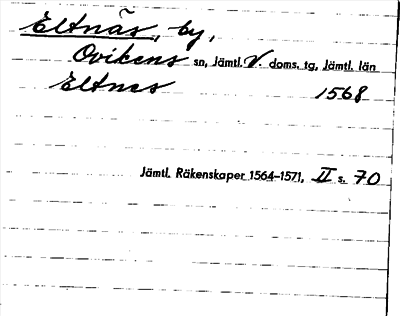 Eltnäs, by,
Ovikens sn, Jämtl. V. doms. tg, Jämtl. län
Eltnes 1568
Jämtl. Räkenskaper 1564-1571, II s. 70